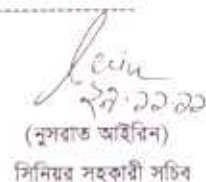 ২৭.১১.১১
(নুসরাত আইরিন)
সিনিয়র সহকারী সচিব